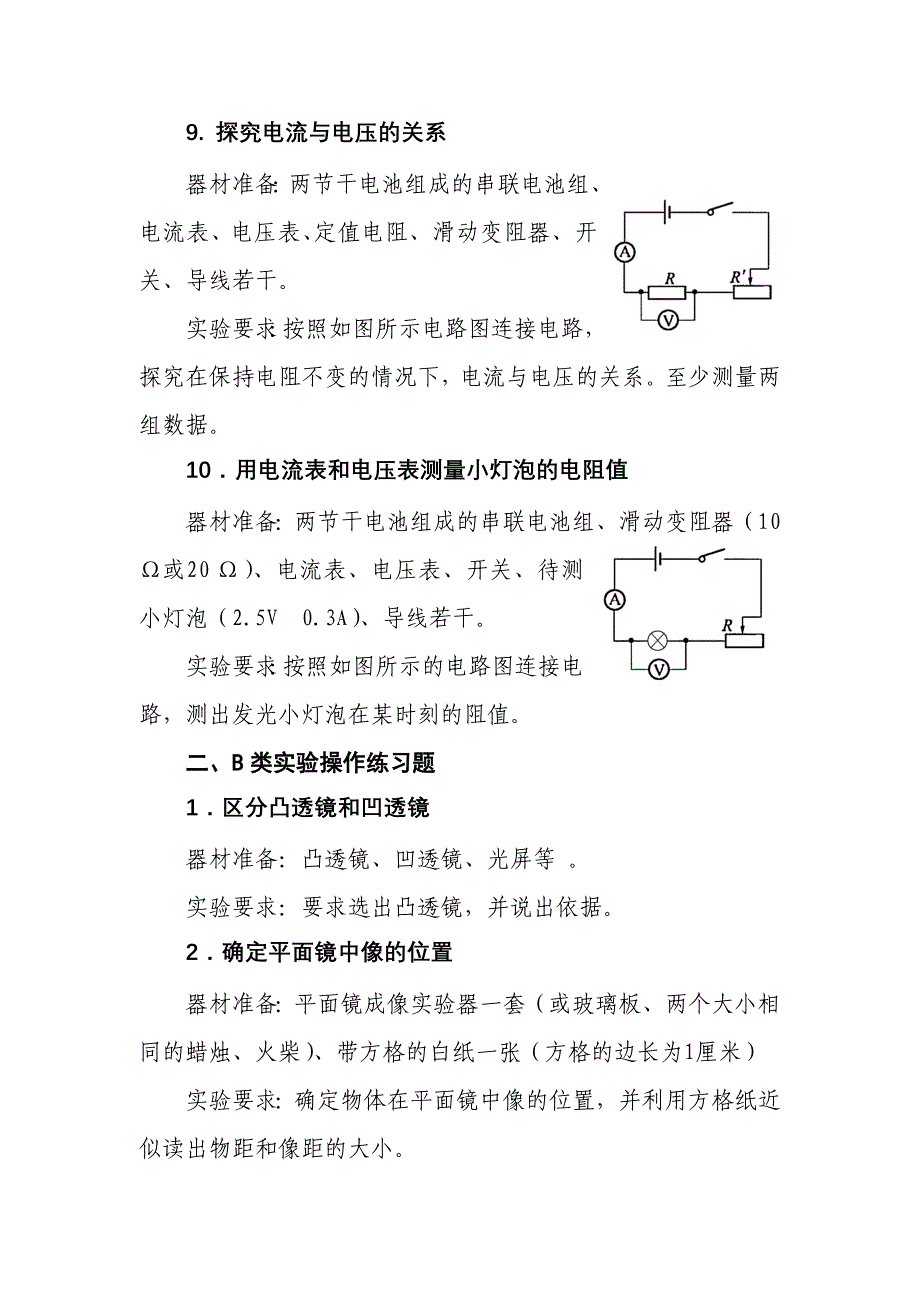 9. 探究电流与电压的关系
器材准备: 两节干电池组成的串联电池组、
电流表、电压表、定值电阻、滑动变阻器、开
关、导线若干。
A
R
R′
V
实验要求:按照如图所示电路图连接电路,
探究在保持电阻不变的情况下,电流与电压的关系。至少测量两
组数据。
10．用电流表和电压表测量小灯泡的电阻值
器材准备: 两节干电池组成的串联电池组、滑动变阻器(10
Ω或20 Ω)、电流表、电压表、开关、待测
小灯泡(2.5V 0.3A)、导线若干。
A
R
V
实验要求:按照如图所示的电路图连接电
路,测出发光小灯泡在某时刻的阻值。
二、B 类实验操作练习题
1．区分凸透镜和凹透镜
器材准备: 凸透镜、凹透镜、光屏等 。
实验要求: 要求选出凸透镜,并说出依据。
2．确定平面镜中像的位置
器材准备: 平面镜成像实验器一套(或玻璃板、两个大小相
同的蜡烛、火柴)、带方格的白纸一张(方格的边长为1厘米)
实验要求: 确定物体在平面镜中像的位置,并利用方格纸近
似读出物距和像距的大小。